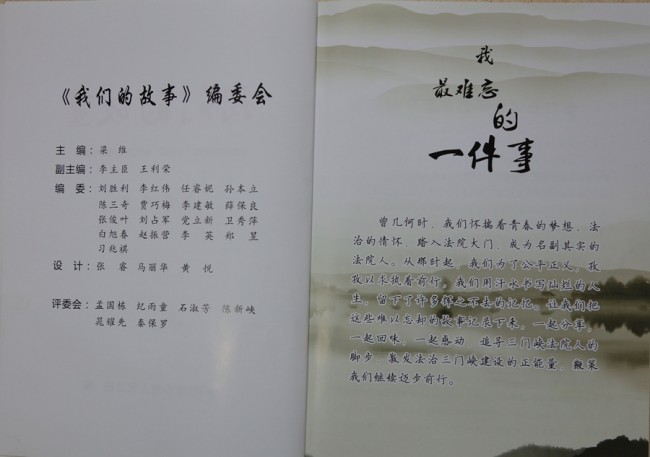 《我们的故事》编委会
主 编：梁 维
副主编：李主臣 王利荣
编 委：刘胜利 李红伟 任睿妮 孙本立
陈三奇 贾巧梅 李建敏 薛保良
张俊叶 刘占军 党立新 卫秀萍
白旭春 赵振营 李 英 郑 昱
习兆祺
设 计：张 睿 马丽华 黄 悦
评委会：孟国栋 纪雨童 石淑芳 陈新峡
晁耀先 秦保罗
我
最难忘
的
一件事
曾几何时，我们怀揣着青春的梦想、法
治的情怀，踏入法院大门，成为名副其实的
法院人。从那时起，我们为了公平正义，孜
孜以求执着前行，我们用汗水书写灿烂的人
生，留下了许多挥之不去的记忆，让我们把
这些难以忘却的故事记录下来，一起分享，
一起回味，一起感动，追寻三门峡法院人的
脚步，激发法治三门峡建设的正能量，鞭策
我们继续迈步前行。